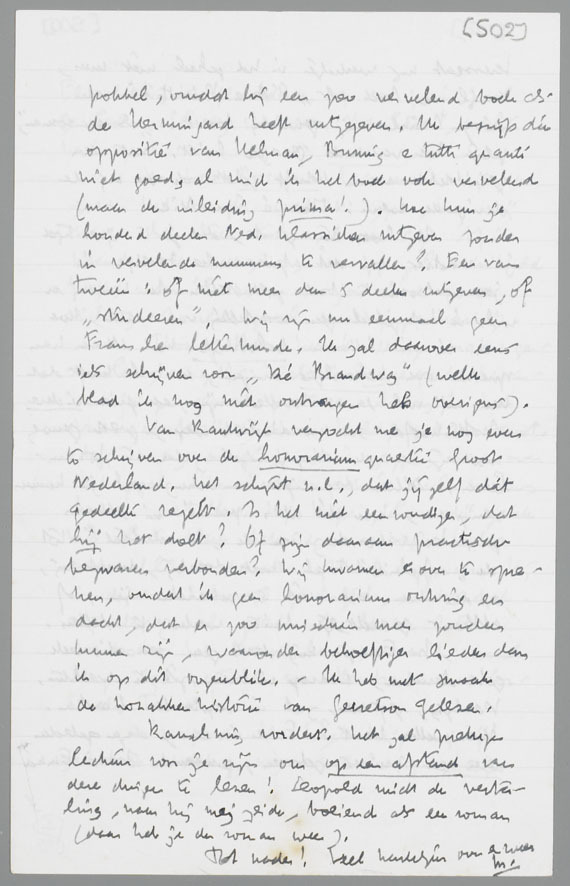 [502]
pokkel, omdat hij een zoo vervelend boek als
de Herminjard heeft uitgegeven. Ik begrijp die
oppositie van Helman, Bruning e tutti quanti
niet goed, al vind ik het boek ook vervelend
(maar de inleiding prima!). Hoe kun je
honderd deelen Ned. klassieken uitgeven zonder
in vervelende nummers te vervallen? Een van
tweeën: òf niet meer dan 5 deelen uitgeven, òf
„studeeren”. Wij zijn nu eenmaal geen
Fransche letterkunde. Ik zal daarover eens
iets schrijven voor „De Brandweg” (welk
blad ik nog niet ontvangen heb overigens).
Van Kampen verzocht me je nog even
te schrijven over de honorarium quaestie Groot
Nederland. Het schijnt n.l., dat jij zelf dat
gedeelte regelt. Is het niet eenvoudiger, dat
hij het doet? Of zijn daaraan practische
bezwaren verbonden? Wij kwamen erover te spre-
ken, omdat ik geen honorarium ontving en
dacht, dat er zoo misschien meer zouden
kunnen zijn, waaronder behoeftiger lieden dan
ik op dit oogenblik. - Ik heb met smaak
de kozakkenhistorie van Gerretson gelezen.
Rauschning vordert. Het zal prachtige
lectuur voor je zijn om op een afstand van
deze dingen te lezen! Leopold vindt de verta-
ling, naar hij mij zeide, boeiend als een roman
(daar heb je den roman weer).
Tot nader! Veel hartelijks over en weer
M.